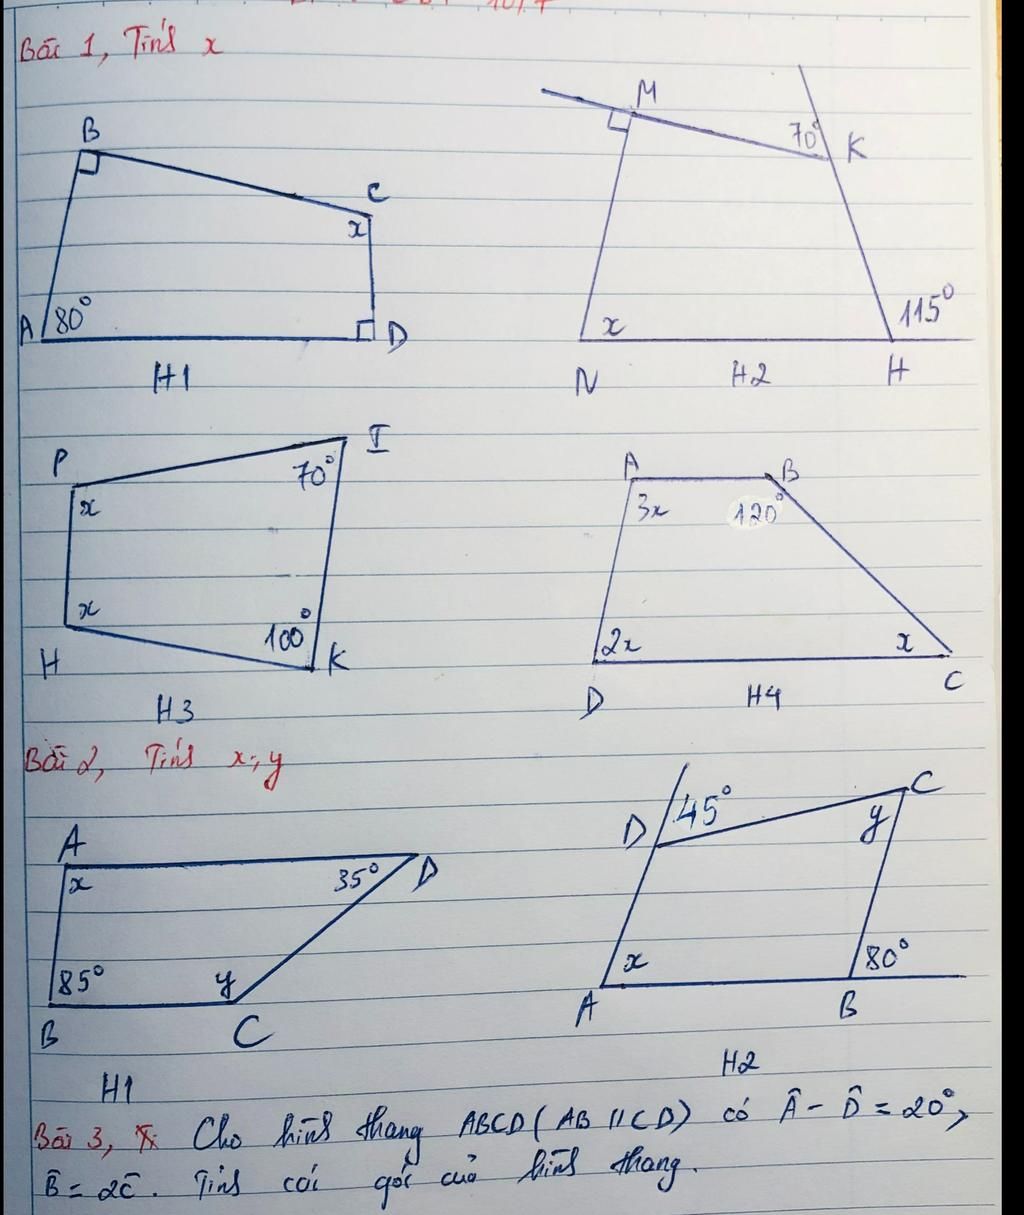 Bài 1, Tính x
B
C
x
A
80°
D
H1
M
70°
K
x
115°
N
H2
H
P
I
70°
x
x
100°
H
K
H3
A
B
3x
120°
2x
x
D
H4
C
Bài 2, Tính x, y
A
D
x
35°
85°
y
B
C
H1
D
45°
C
y
x
80°
A
B
H2
Bài 3, Cho hình thang ABCD (AB // CD) có Â - D̂ = 20°,
B̂ = 2Ĉ. Tính các góc của hình thang.